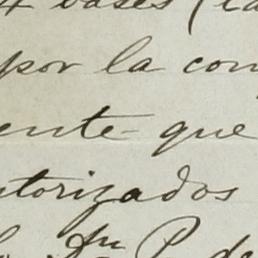 4 bases (la
por la con
ente- que
torizados
P. de